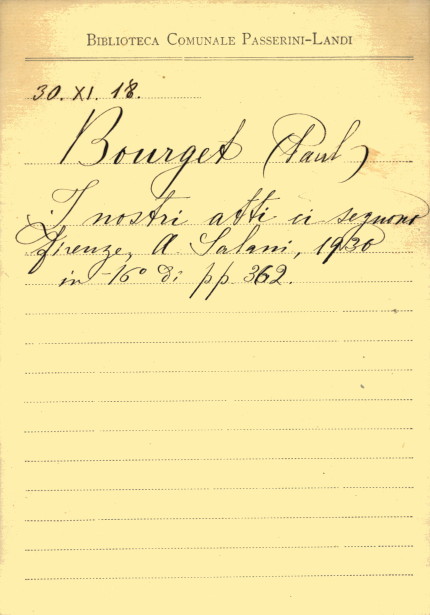 BIBLIOTECA COMUNALE PASSERINI-LANDI
30. XI. 18.
Bourget (Paul)
I nostri atti ci seguono
Firenze, A. Salani, 1930
in-16° di pp. 362.